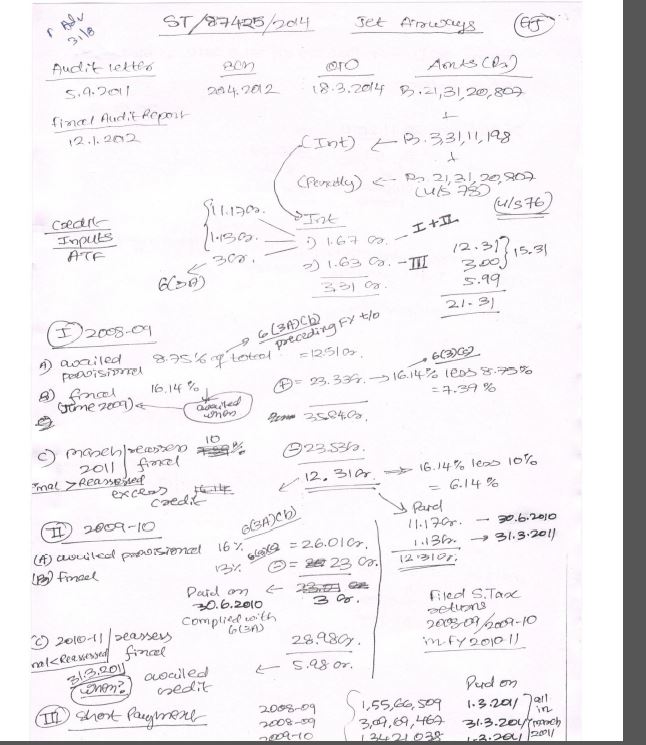 Adv
31/8
ST/87425/2014 Jet Airways
Audit letter SCN OIO Amts (Rs)
5.9.2011 20.4.2012 18.3.2014 Rs. 21,31,20,807
+
Final Audit Report
12.1.2012
(Int) ← Rs. 3,31,11,198
+
(Penalty) ← Rs. 21,31,20,807
(U/S 78)
(U/S 76)
Credit
Inputs
ATF
11.17Cr.
1.13Cr.
3Cr.
6(3A)
Int
1) 1.67 Cr. – I + II
2) 1.63 Cr. – III
3.31 Cr.
12.31
3.00
15.31
5.99
21.31
I 2008-09
6(3A)(b)
preceding FY t/o
A) availed 8.75% of total = 12.51Cr.
provisional
6(3)(c)
B) final 16.14%
(June 2009) ← availed when
(+) = 23.33Cr. → 16.14% less 8.75%
= 7.39%
35.84Cr.
C) March reassess 10%
2011 final
(-) 23.53Cr.
final > Reassessed
excess
credit
12.31Cr. → 16.14% less 10%
= 6.14%
Paid
11.17Cr. – 30.6.2010
1.13Cr. → 31.3.2011
12.31Cr.
II 2009-10
6(3A)(b)
(A) availed provisional 16% = 26.01Cr.
(B) final 13% (-) = 23 Cr.
Paid on ← 3 Cr.
30.6.2010
Complied with
6(3A)
Filed S.Tax
returns
2008-09/2009-10
in FY 2010-11
C) 2010-11 reassess 28.98Cr.
final < Reassessed final
31.3.2011 availed ← 5.98 Cr.
when? credit
Paid on
III Short Payment
2008-09 1,55,66,509 1.3.2011
2008-09 3,09,69,467 31.3.2011
2009-10 1,34,21,038 1.3.2011
all
in
March
2011